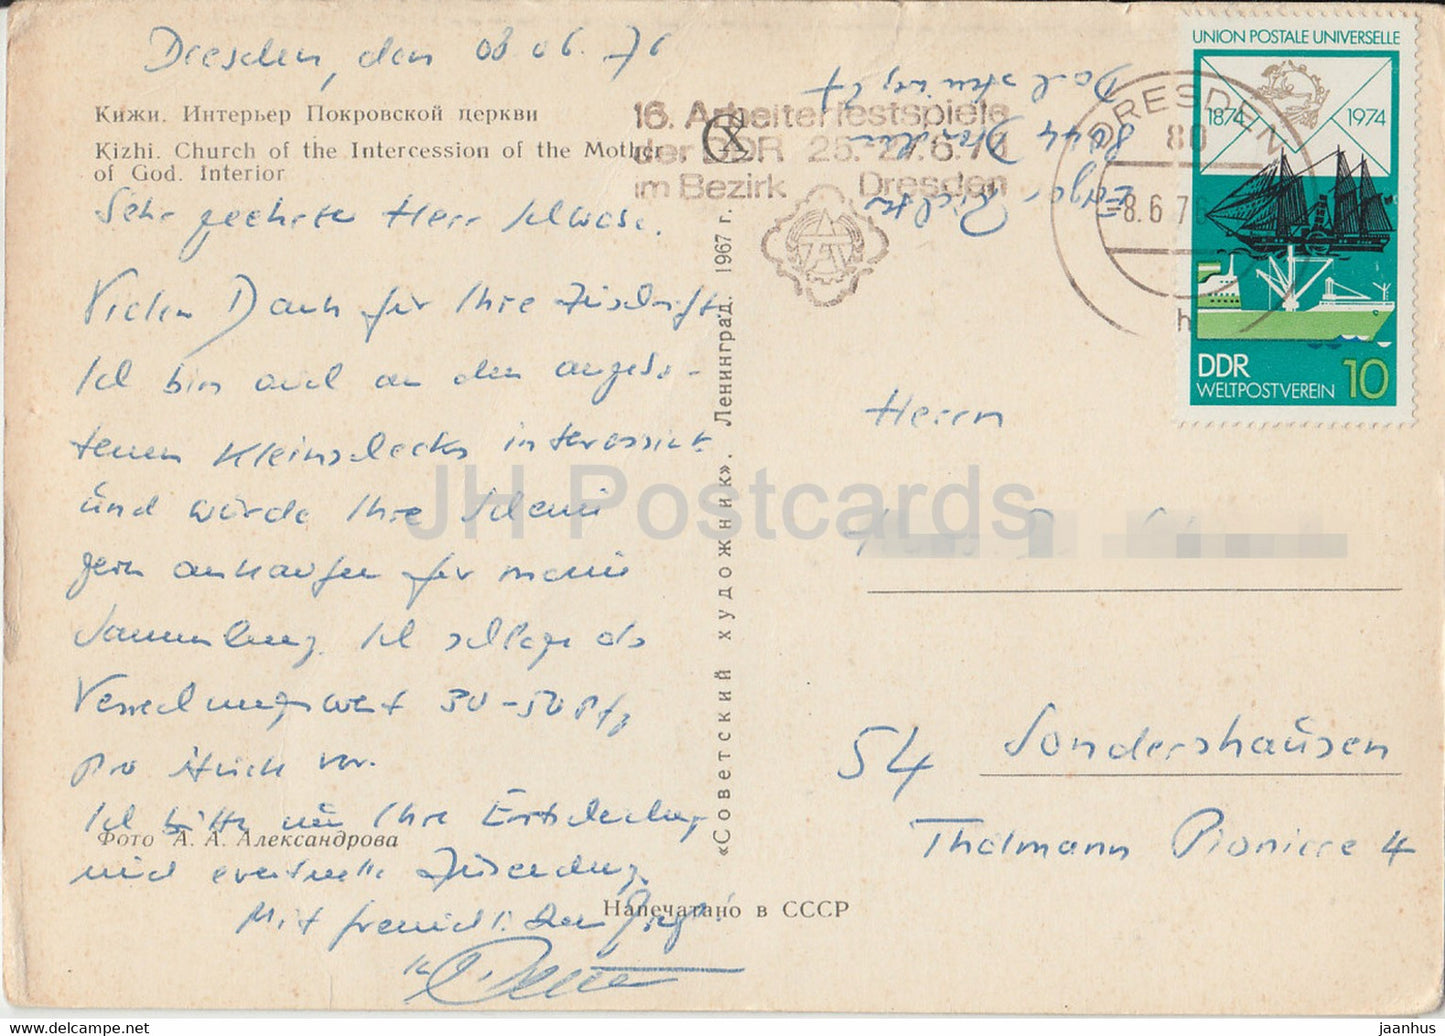 Dresden, den 08 06. 76
Кижи. Интерьер Покровской церкви
Kizhi. Church of the Intercession of the Mother
of God. Interior
Sehr geehrter Herr
Vielen Dank für Ihre Zuschrift.
Ich bin auch an den angebo-
tenen Kleinschecks interessiert
und würde Ihre Scheine
gern ankaufen für meine
Sammlung. Ich schlage als
Verrechnungswert 30-50 Pfg
pro Stück vor.
Ich bitte um Ihre Entscheidung
Фото А. А. Александрова
und eventuelle Zusendung.
Mit freundl.
Напечатано в СССР
«Советский художник». Ленинград. 1967 г.
16. Arbeiterfestspiele
der DDR 25.-27.6.76
im Bezirk Dresden
8044 Dresden
DRESDEN
80
-8.6.76
h
UNION POSTALE UNIVERSELLE
1874 1974
DDR
WELTPOSTVEREIN 10
Herrn
54 Sondershausen
Thälmann Pioniere 4
JH Postcards
jaanhus